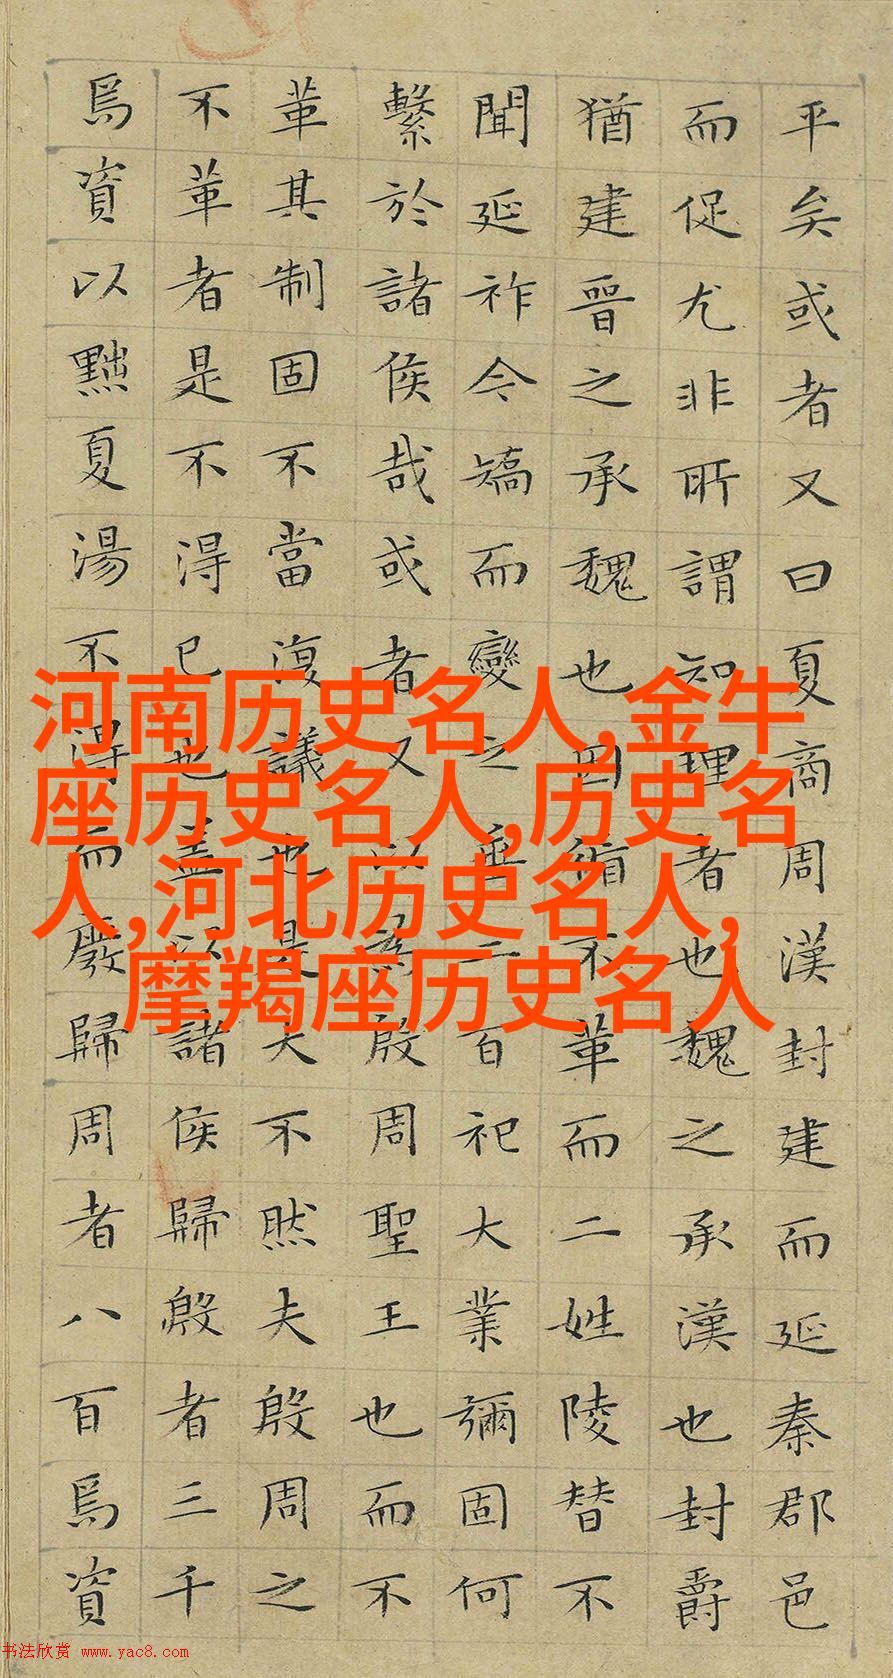 平矣或者又曰夏商周漢封建而延秦郡邑
而促尤非所謂知理者也魏之承漢也封爵
猶建晉之承魏也因循不革而二姓陵替不
聞延祚今矯而變之垂二百祀大業彌固何
繫於諸侯哉或者又以為殷周聖王也而不
革其制固不當復議也是大不然夫殷周之
不革者是不得已也蓋以諸侯歸殷者三千
焉資以黜夏湯不得而廢歸周者八百焉資
河南历史名人,金牛
座历史名人,历史名
人,河北历史名人,
摩羯座历史名人
书法欣赏 www.yac8.com